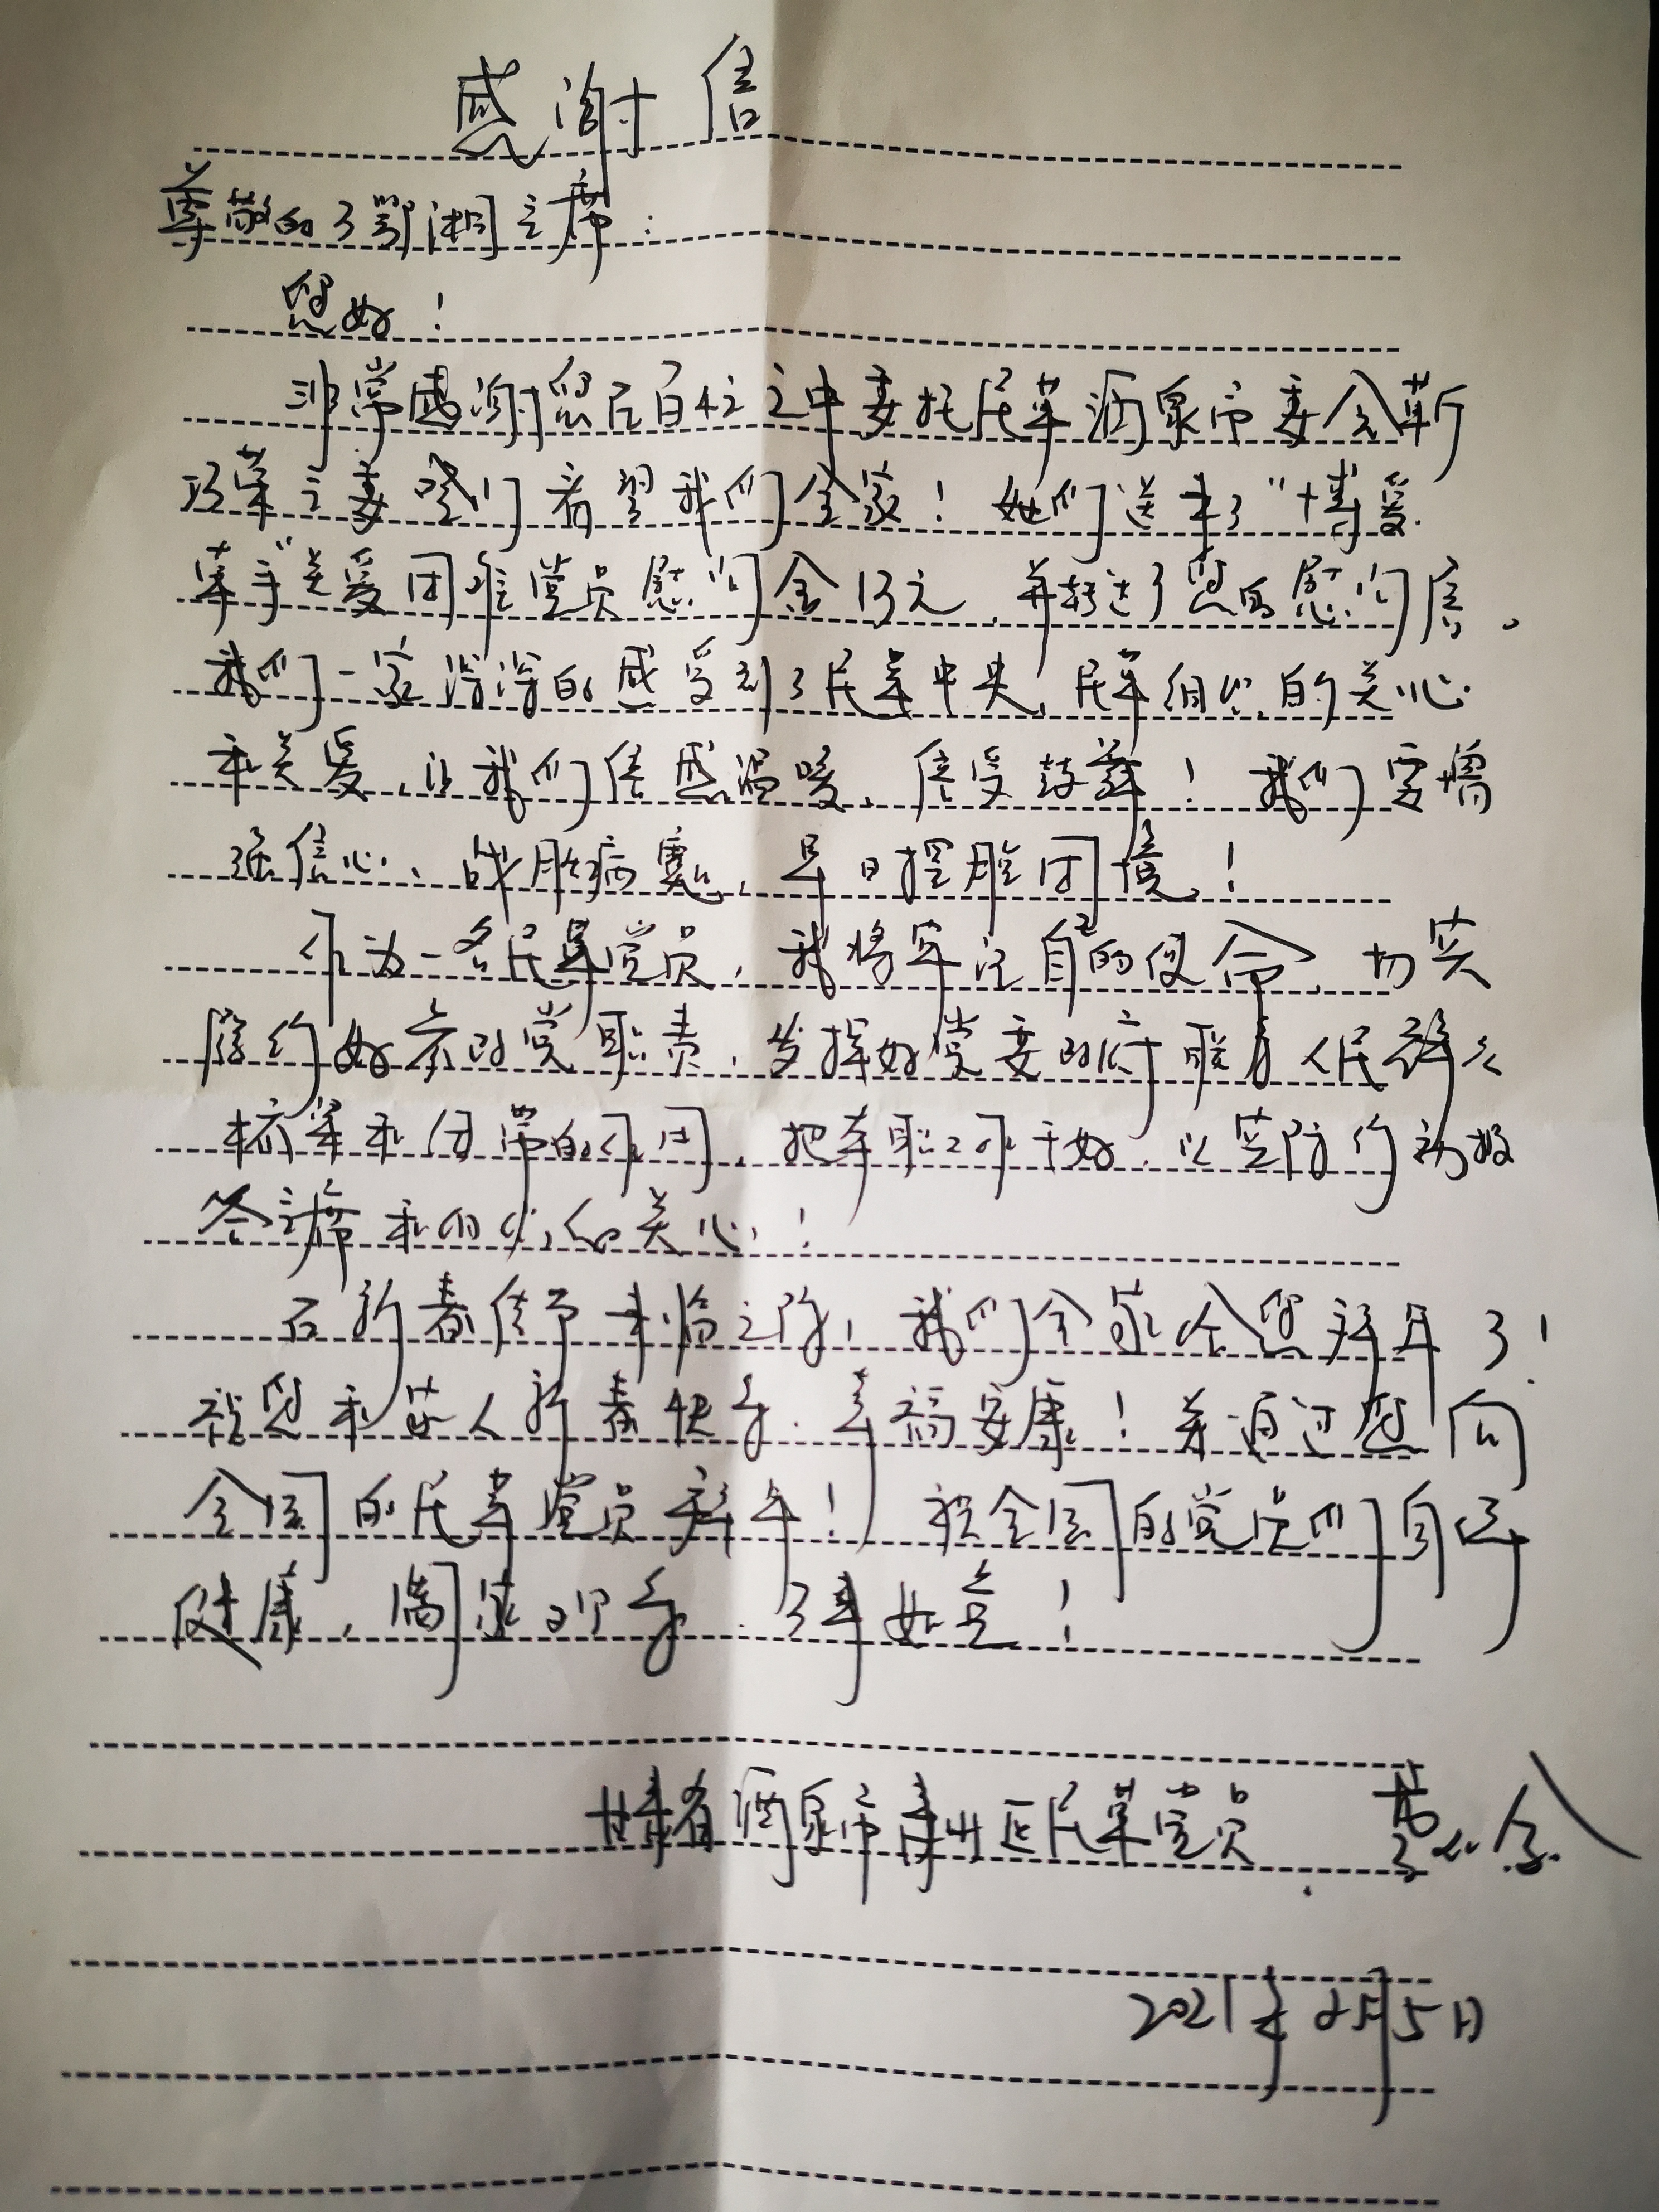 感谢信
尊敬的万鄂湘主席：
您好！
非常感谢您在百忙之中委托民革酒泉市委会靳
巧菊主委登门看望我们全家！她们送来了“博爱.
牵手”关爱困难党员慰问金1万元，并转达了您的慰问信。
我们一家深深的感受到了民革中央、民革组织的关心
和关爱，让我们倍感温暖、倍受鼓舞！我们要增
强信心、战胜病魔，早日摆脱困境！
作为一名民革党员，我将牢记自己的使命，切实
履行好参政党职责，发挥好党委政府联系人民群众
桥梁和纽带的作用，把本职工作干好，以实际行动报
答主席和组织的关心！
在新春佳节来临之际，我们全家给您拜年了！
祝您和家人新春快乐、幸福安康！并通过您向
全国的民革党员拜年！祝全国的党员们身体
健康，阖家欢乐、万事如意！
甘肃省酒泉市肃州区民革党员
2021年2月5日